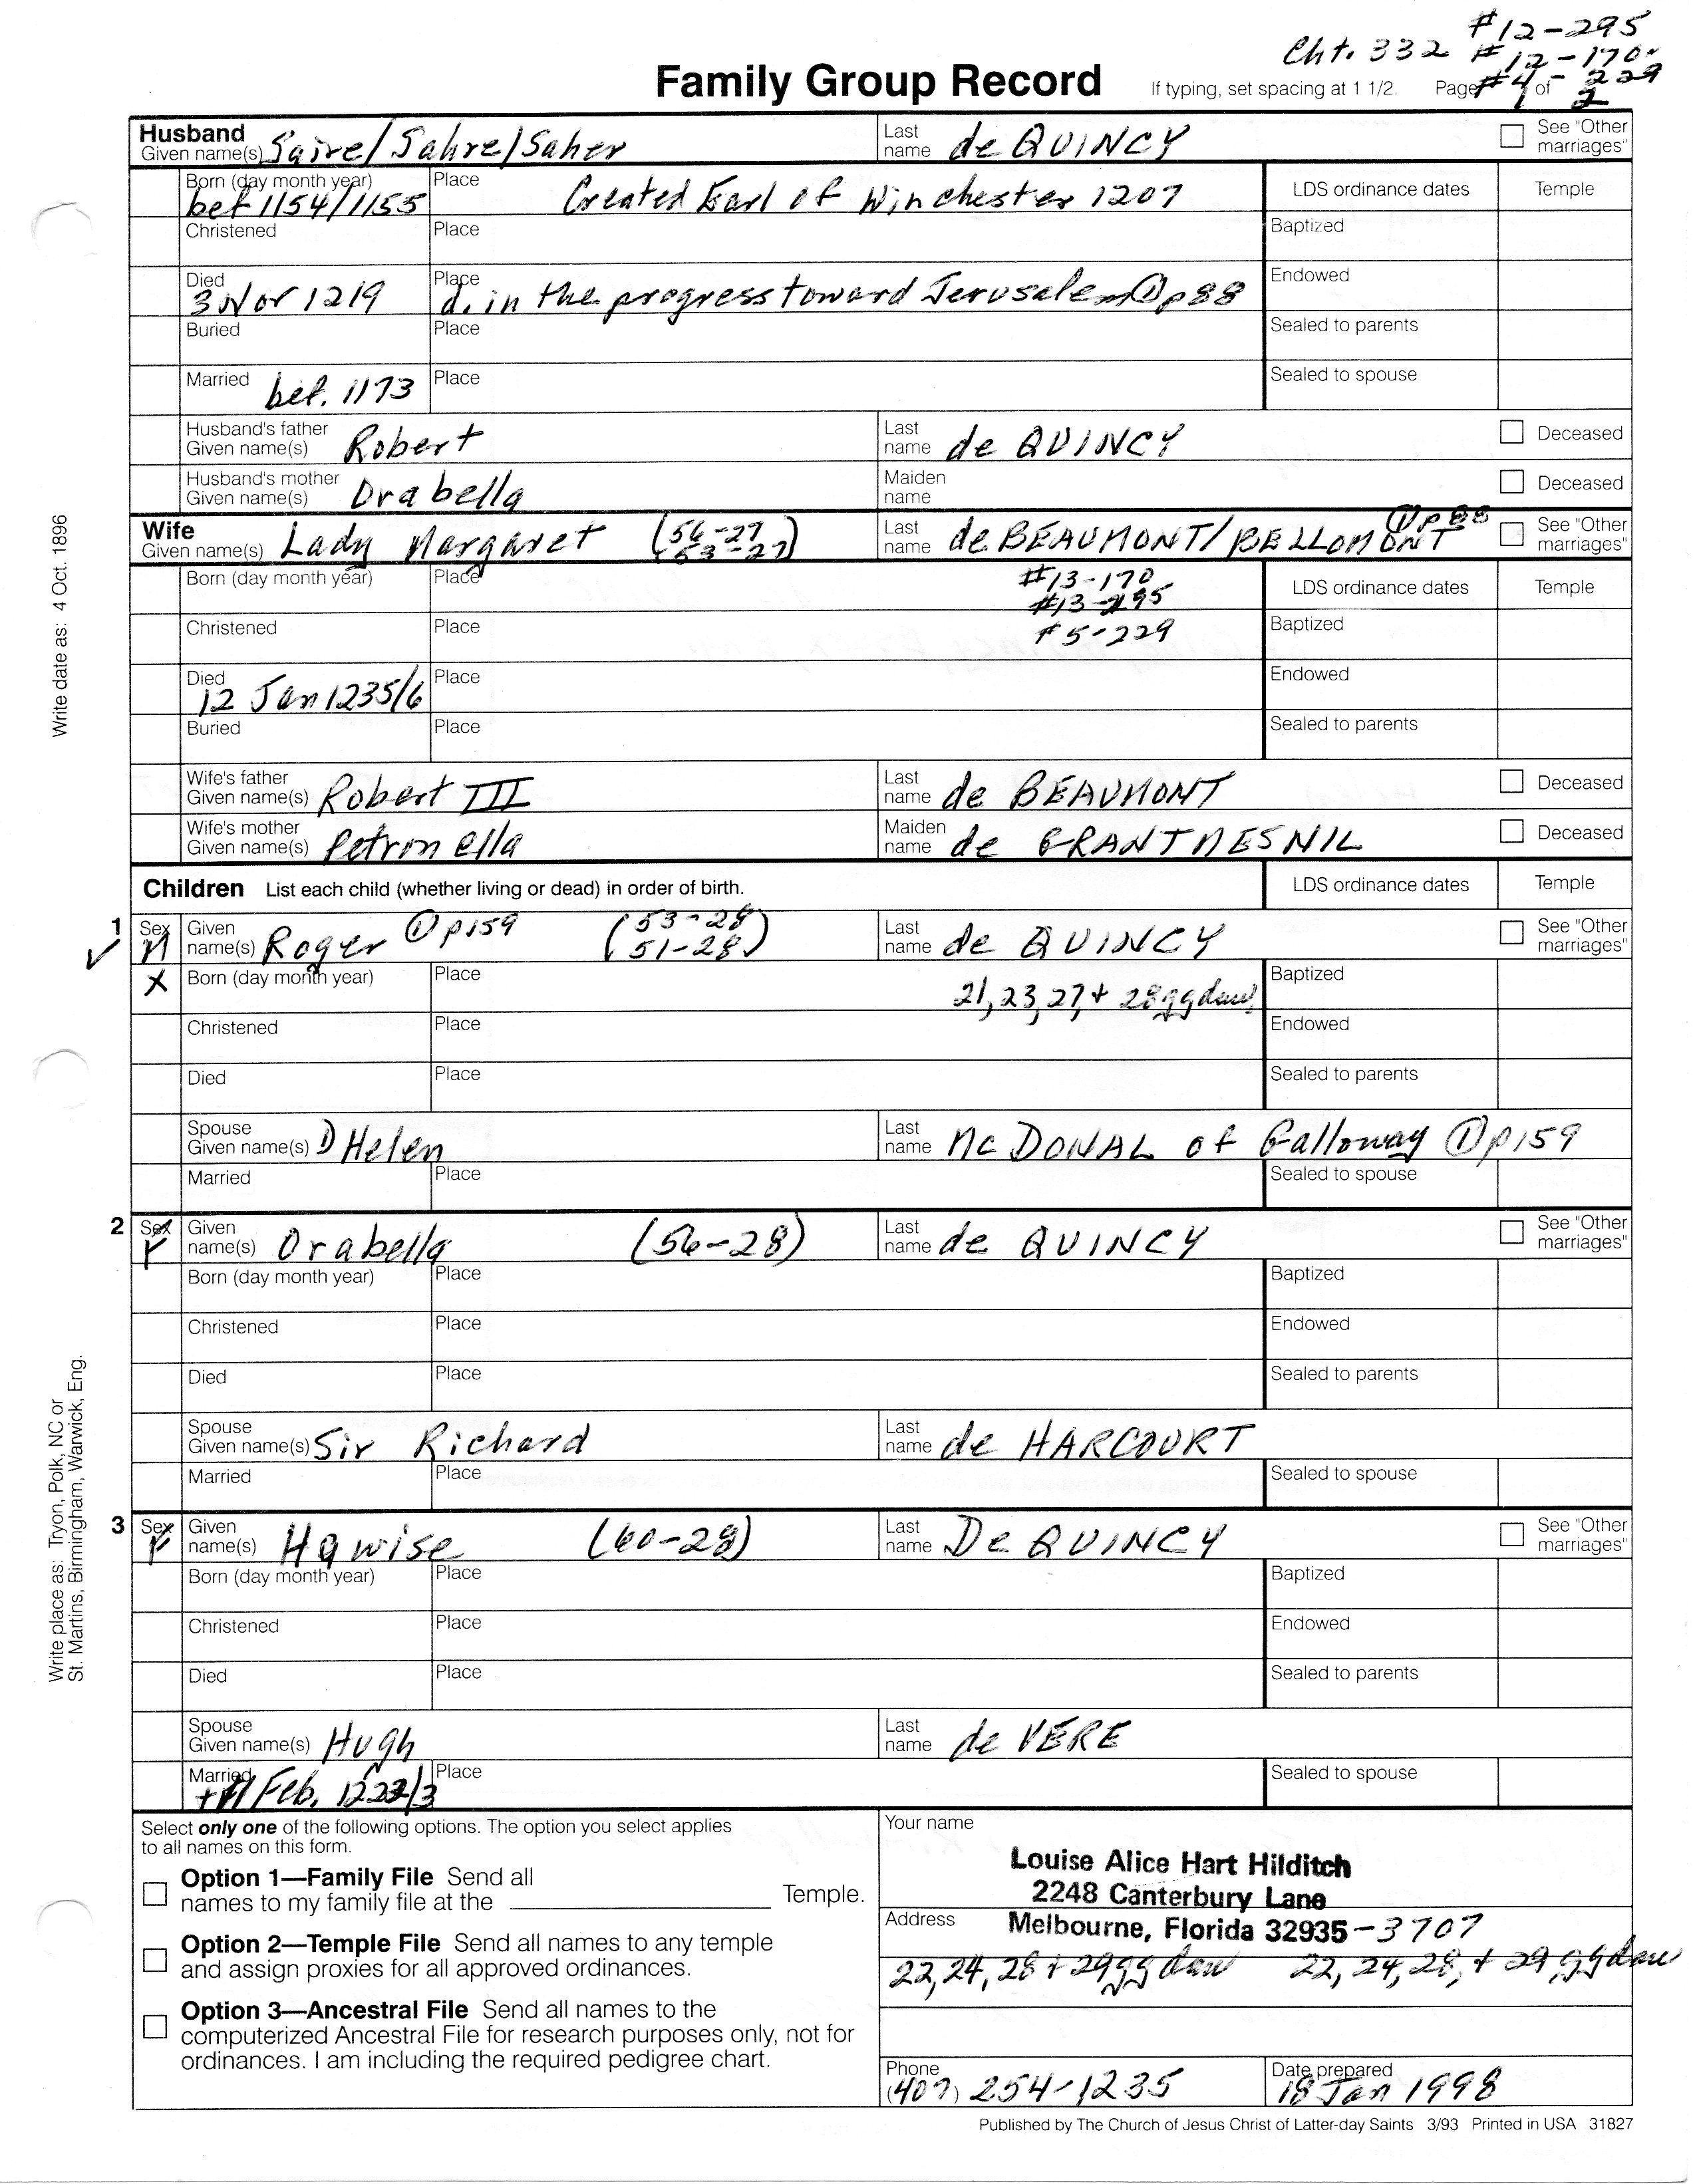 Cht. 332 #12-295
#12-170
#4-229
Family Group Record If typing, set spacing at 1 1/2. Page 1 of 2
Husband
Given name(s) Saire/Sahre/Saher Last name de QUINCY See "Other marriages"
Born (day month year) bef 1154/1155 Place Created Earl of Winchester 1207 LDS ordinance dates Temple
Christened Place Baptized
Died 3 Nov 1219 Place d. in the progress toward Jerusalem ① p88 Endowed
Buried Place Sealed to parents
Married bef. 1173 Place Sealed to spouse
Husband's father Given name(s) Robert Last name de QUINCY Deceased
Husband's mother Given name(s) Orabella Maiden name Deceased
Wife
Given name(s) Lady Margaret (56-27) (53-27) Last name de BEAUMONT/BELLOMONT ① p88 See "Other marriages"
Born (day month year) Place #13-170 LDS ordinance dates Temple
#13-295
Christened Place #5-229 Baptized
Died 12 Jan 1235/6 Place Endowed
Buried Place Sealed to parents
Wife's father Given name(s) Robert III Last name de BEAUMONT Deceased
Wife's mother Given name(s) Petronella Maiden name de GRANTMESNIL Deceased
Children List each child (whether living or dead) in order of birth. LDS ordinance dates Temple
1 Sex M Given name(s) Roger ① p159 (53-28) (51-28) Last name de QUINCY See "Other marriages"
X Born (day month year) Place 21, 23, 27, + 28 ggdau Baptized
Christened Place Endowed
Died Place Sealed to parents
Spouse Given name(s) 1) Helen Last name Mc DONAL of Galloway ① p159
Married Place Sealed to spouse
2 Sex F Given name(s) Orabella (56-28) Last name de QUINCY See "Other marriages"
Born (day month year) Place Baptized
Christened Place Endowed
Died Place Sealed to parents
Spouse Given name(s) Sir Richard Last name de HARCOURT
Married Place Sealed to spouse
3 Sex F Given name(s) Hawise (60-28) Last name De QUINCY See "Other marriages"
Born (day month year) Place Baptized
Christened Place Endowed
Died Place Sealed to parents
Spouse Given name(s) Hugh Last name de VERE
Married Feb. 1222/3 Place Sealed to spouse
Select only one of the following options. The option you select applies
to all names on this form.
Option 1—Family File Send all
names to my family file at the Temple.
Option 2—Temple File Send all names to any temple
and assign proxies for all approved ordinances.
Option 3—Ancestral File Send all names to the
computerized Ancestral File for research purposes only, not for
ordinances. I am including the required pedigree chart.
Your name
Louise Alice Hart Hilditch
2248 Canterbury Lane
Address Melbourne, Florida 32935-3707
22, 24, 28 + 29 gg dau 22, 24, 28, + 29 ggdau
Phone (407) 254-1235 Date prepared 18 Jan 1998
Published by The Church of Jesus Christ of Latter-day Saints 3/93 Printed in USA 31827
Write date as: 4 Oct. 1896
Write place as: Tryon, Polk, NC or
St. Martins, Birmingham, Warwick, Eng.